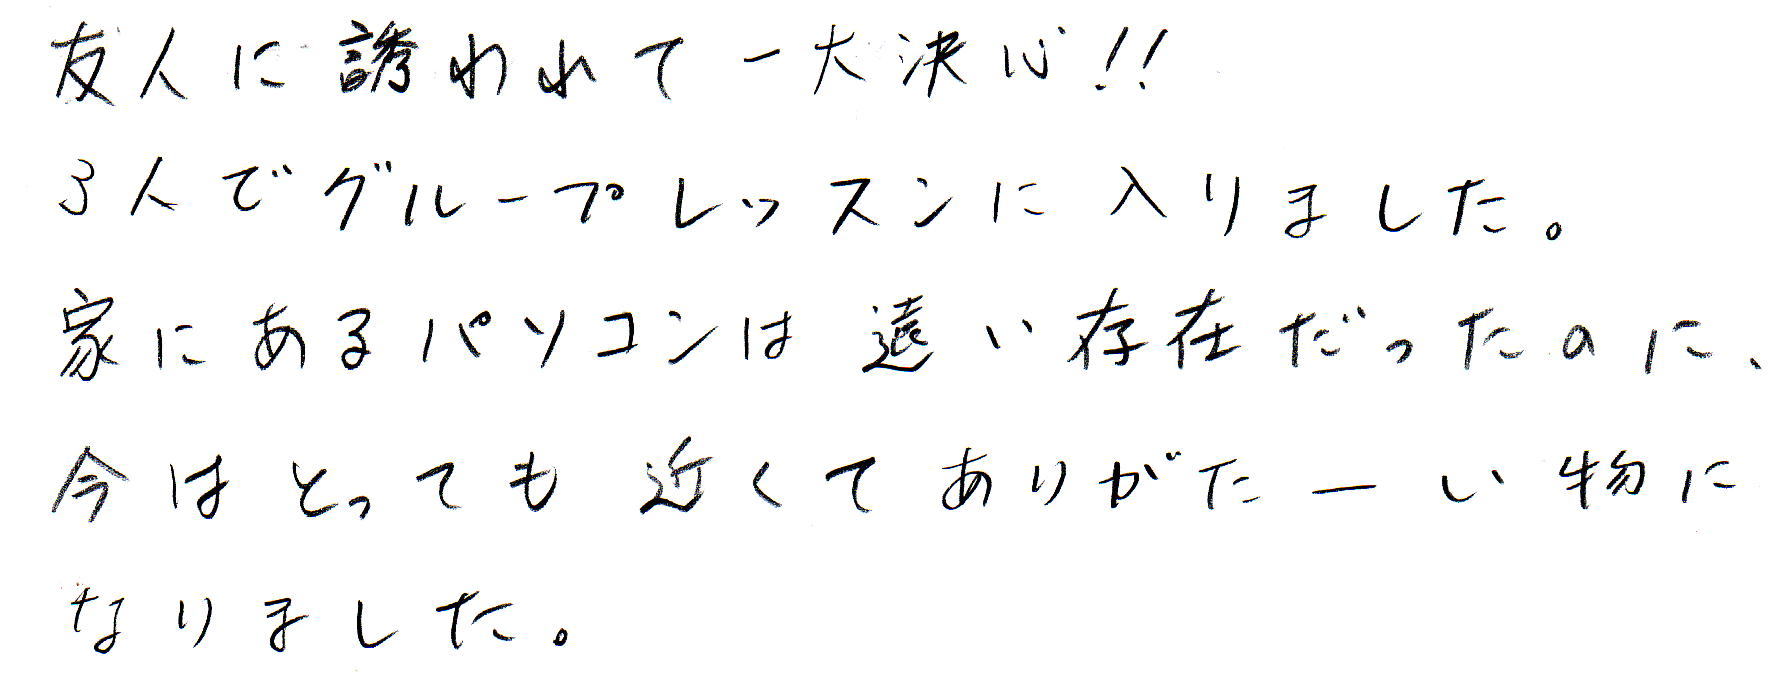 友人に誘われて一大決心!!
3人でグループレッスンに入りました。
家にあるパソコンは遠い存在だったのに、
今はとっても近くてありがたーい物に
なりました。